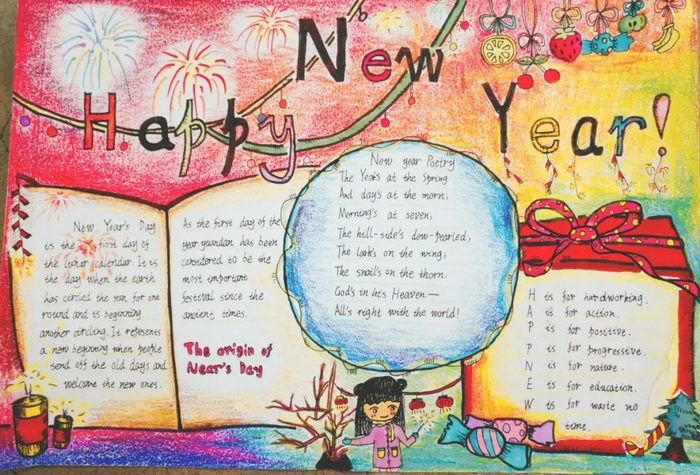 Happy New Year!
New Year's Day
is the first day of
the lunar calendar. It is
the day when the earth
has circled the sun for one
round and is beginning
another circling. It represents
a new beginning when people
send off the old days and
welcome the new ones.
As the first day of the
year, yuandan has been
considered to be the
most important
festival since the
ancient times.
The origin of
Near's Day
New year Poetry
The Year's at the spring
And day's at the morn;
Morning's at seven;
The hill-side's dew-pearled;
The lark's on the wing;
The snail's on the thorn:
God's in his Heaven—
All's right with the world!
H is for hardworking.
A is for action.
P is for positive.
P is for progressive.
N is for nature.
E is for education.
W is for waste no
time.